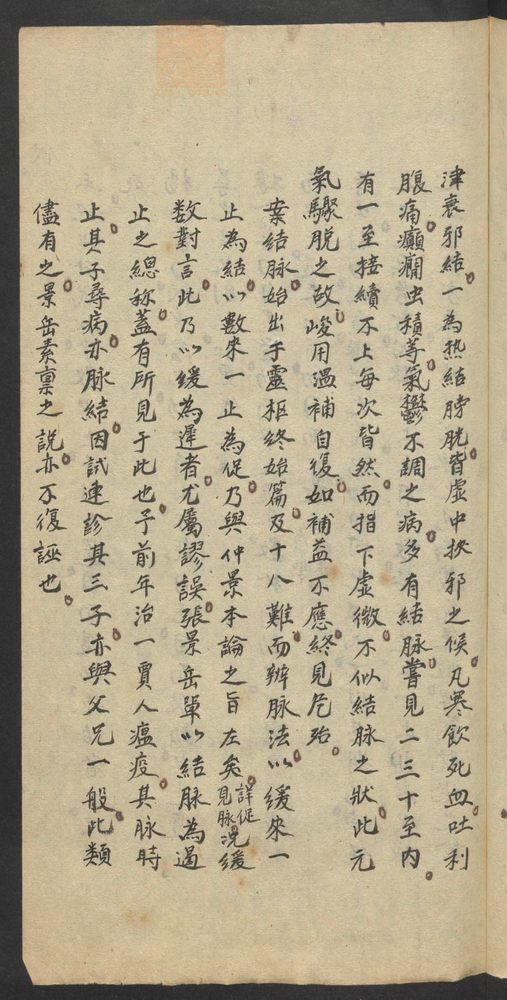 津衰邪結一為热結膀胱皆虚中挾邪之候凡寒飲死血吐利
腹痛癲癇虫積等氣鬱不調之病多有結脉嘗見二三十至内
有一至接續不上每次皆然而指下虚微不似結脉之狀此元
氣驟脱之故峻用溫補自復如補益不應終見危殆
案結脉始出于靈樞終始篇及十八難而辨脉法以緩來一
止為結以數來一止為促乃與仲景本論之旨左矣詳促脉見况緩
数對言此乃以緩為遲者尤屬謬誤張景岳單以結脉為遏
止之總称蓋有所見于此也予前年治一賈人瘟疫其脉時
止其子尋病亦脉結因試連診其三子亦與父兄一般此類
儘有之景岳素禀之說亦不復誣也